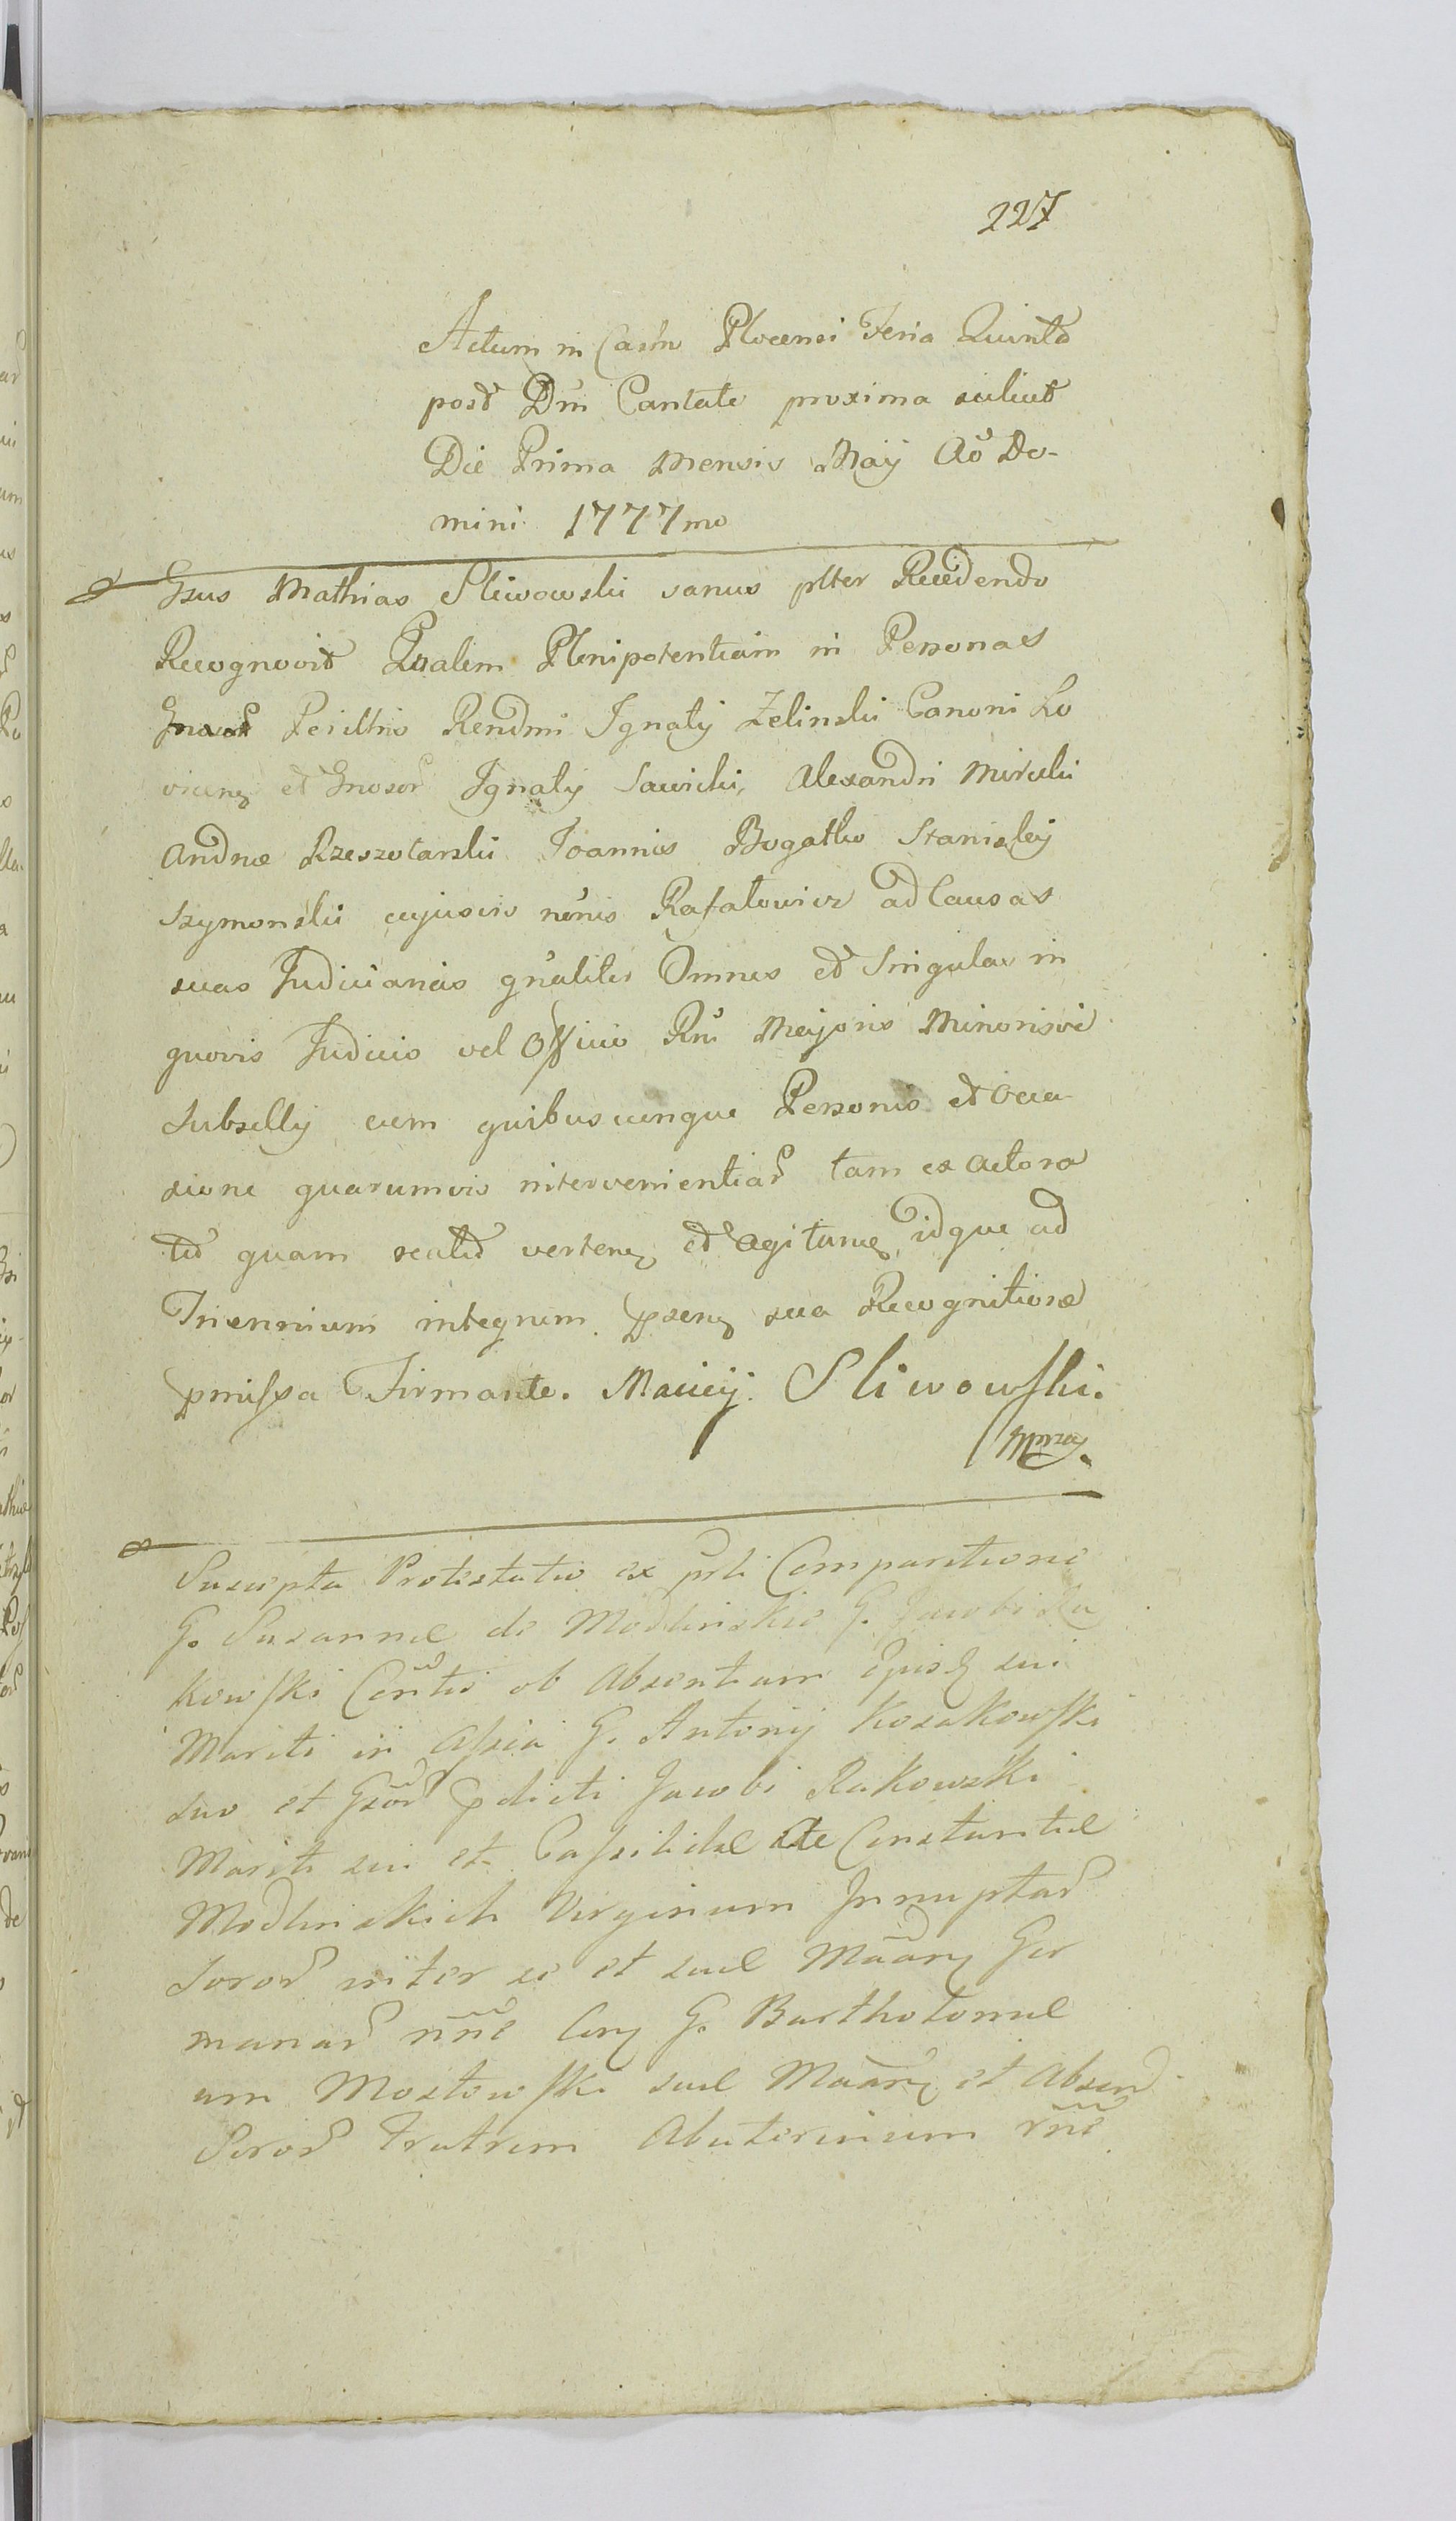 227
Actum in Castro Plocensi Feria Quinta
post Dm̃ Cantate proxima scilicet
Die Prima Mensis Maij Aõ Do-
mini 1777mo
Gsus Mathias Sliwowski sanus pltter Recedendo
Recognovit Qualem Plenipotentiam in Personas
Perilltris Rendmi Ignatij Zelinski Canoni Lo
vicen et Gnosor Ignatij Sawicki, Alexandri Mirecki
Andræ Rzeszotarski Joannis Bogatko Stanislaij
Szymonski cujusvis nõnis Rafałowicz ad Causas
suas Judiciarias gñaliter Omnes et Singulas in
quovis Judicio vel Officio Rni Majoris Minorisve
Subsellij cum quibuscunque Personis et Occa-
sione quarumvis intervenientiar tam ex actora
tu quam reatu verten et agitan idque ad
Triennium integrum psen sua Recognitione
pmissa Firmante. Maciej Sliwowski.
mpria
Suscepta Protestatio ex prli Comparitione
G. Susannæ de Modlinskie G. Jacobi Ra
kowski Consortis ob absentiam Ipis sui
Mariti in Assia G. Antonij Kosakowski
suo et Gsor pdicti Jacobi Rakowski
Mariti sui et Cassildæ ac Constantiæ
Modlinskich Virginum Innuptar
Soror inter se et suæ Maar Ger
manar nne Con G. Bartholomæ
um Mostowski suæ Maar et Absen
Soror Fratrem Abuterinum rne